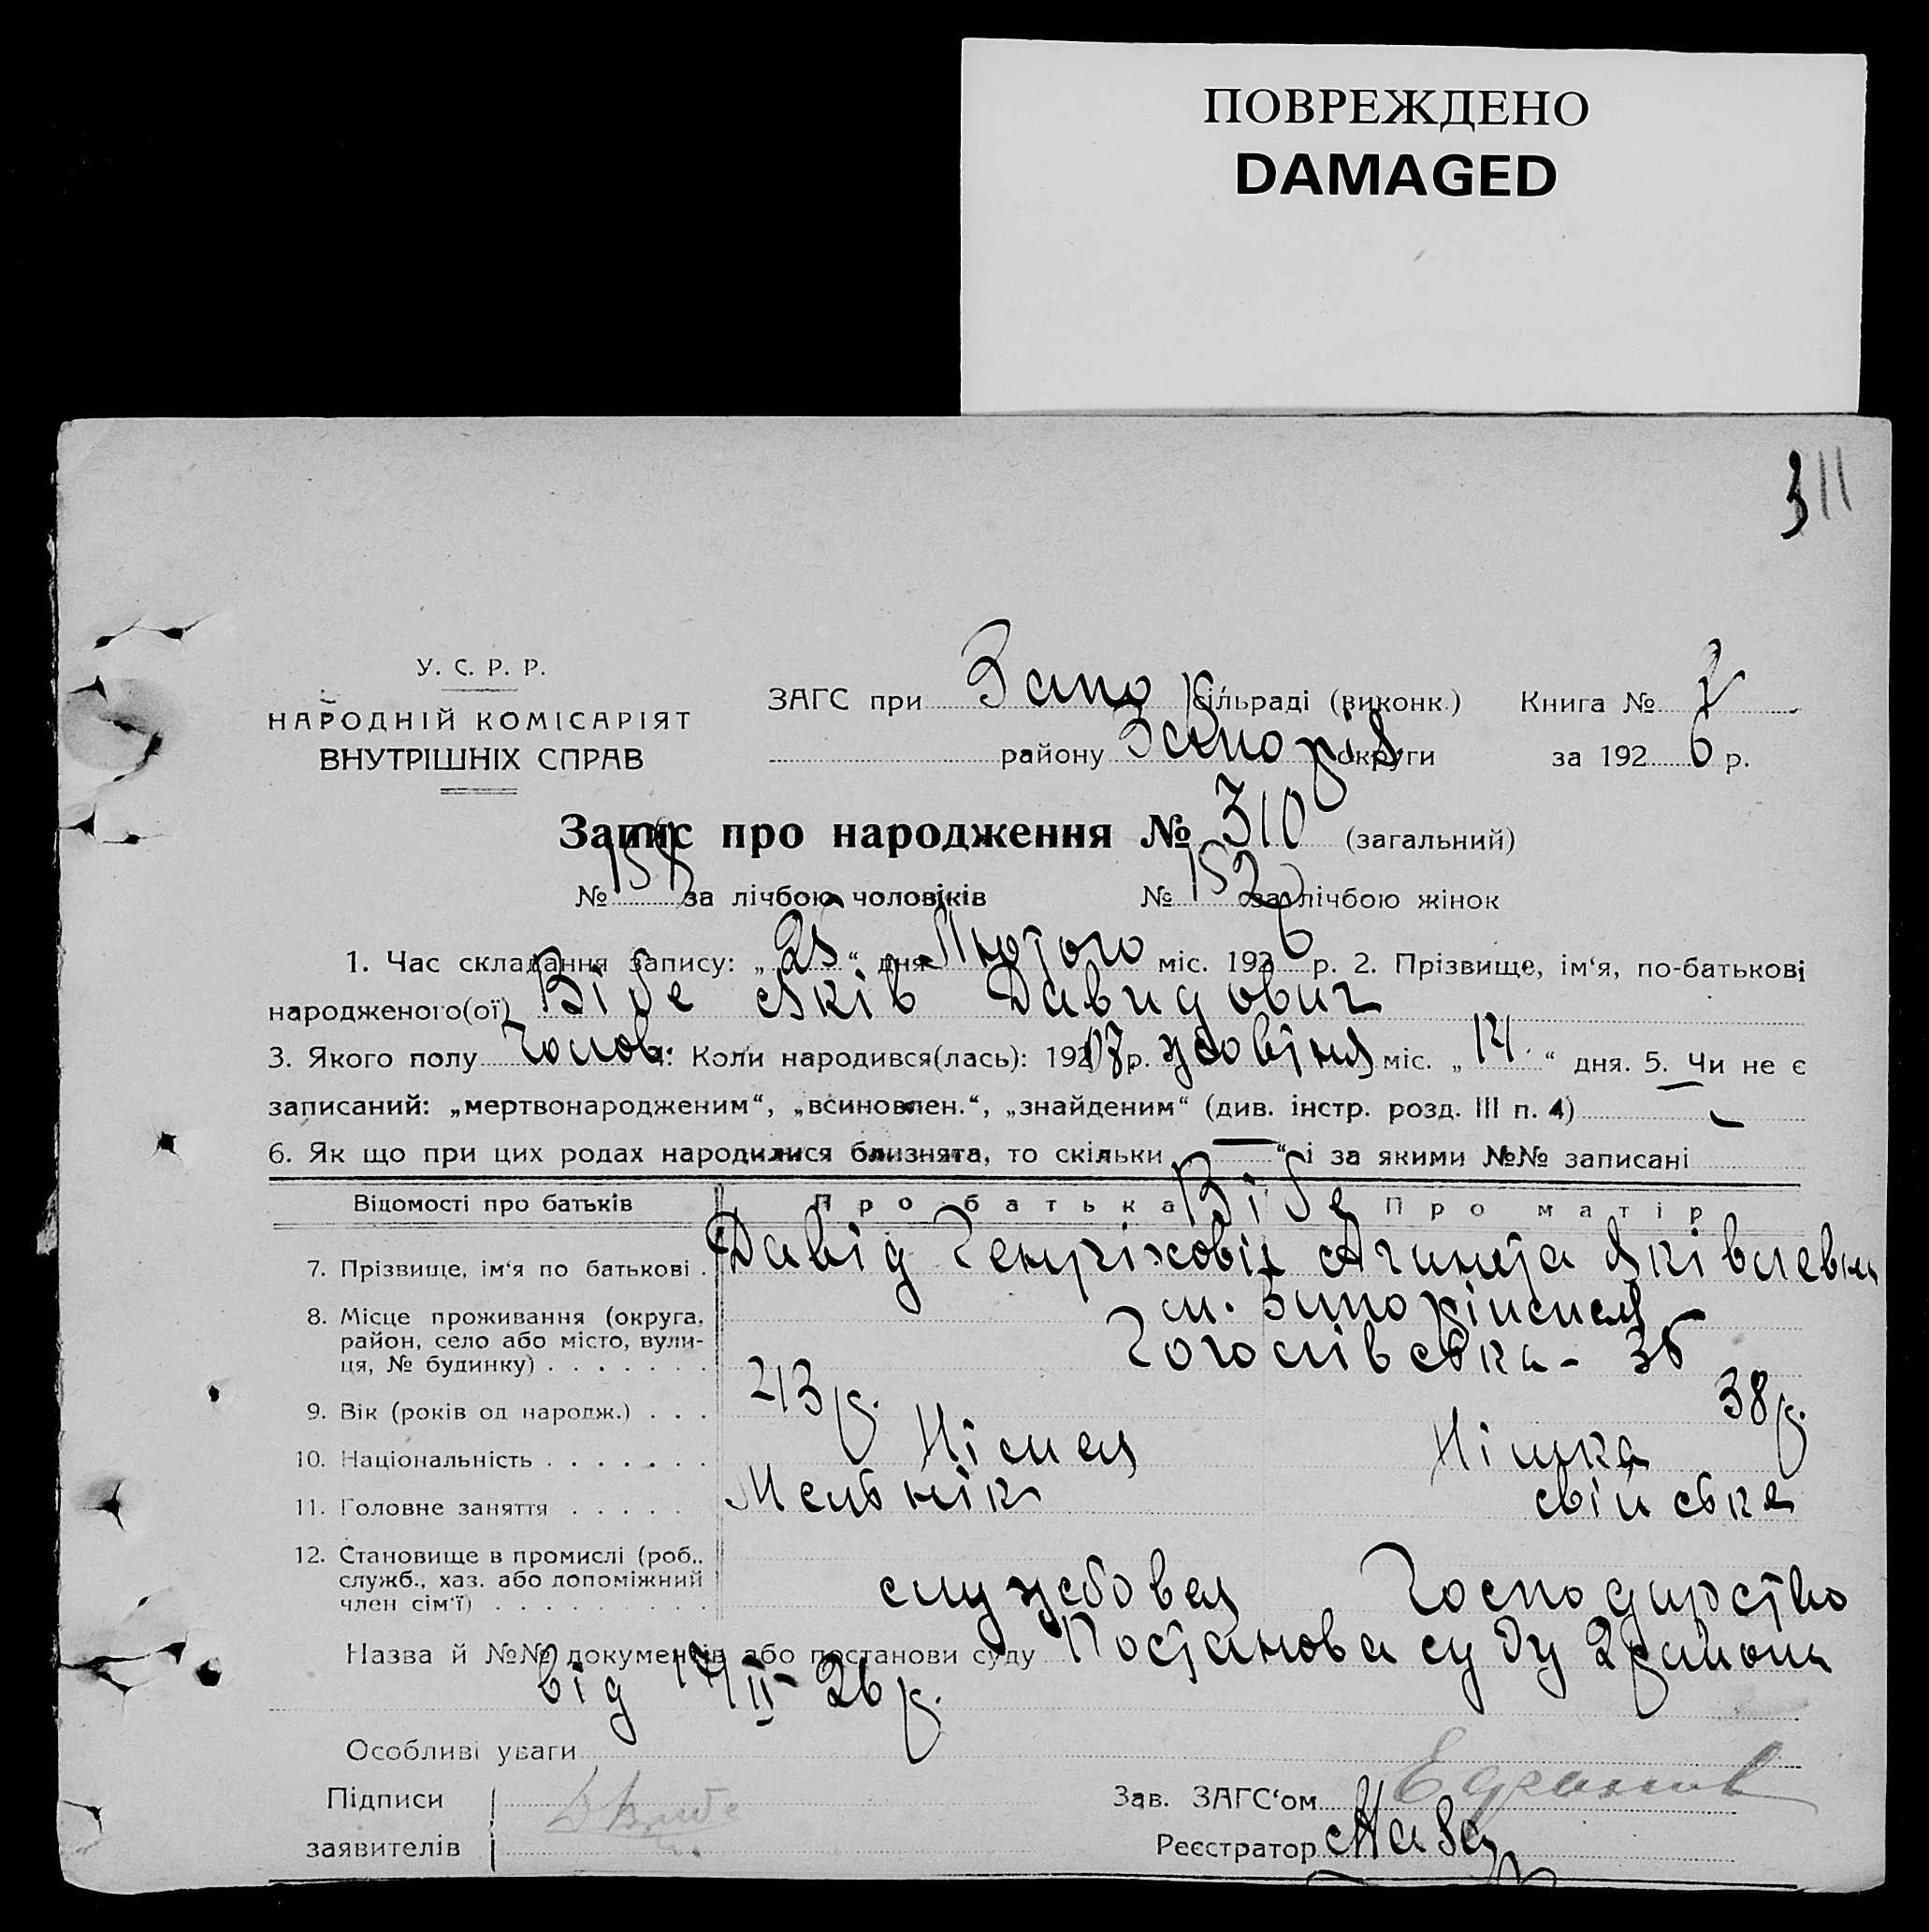 ПОВРЕЖДЕНО
DAMAGED
311
У. С. Р. Р.
НАРОДНІЙ КОМІСАРІЯТ
ВНУТРІШНІХ СПРАВ
ЗАГС при Запо сільраді (виконк.) Книга №
району Запоріз округи за 1926 р.
Запис про народження № 310 (загальний)
№ 158 за лічбою чоловіків № 152 за лічбою жінок
1. Час складання запису: „25“ дня Лютого міс. 1926 р. 2. Прізвище, ім‘я, по-батькові
народженого(ої) Вібе Яків Давидович
3. Якого полу Чолов. 4. Коли народився(лась): 1907 р. жовтня міс. „14“ дня. 5. Чи не є
записаний: „мертвонародженим“, „всиновлен.“, „знайденим“ (див. інстр. розд. III п. 4)
6. Як що при цих родах народилися близнята, то скільки — “ і за якими №№ записані
Відомості про батьків Про батька Вібе Про матір
7. Прізвище, ім‘я по батькові . Давід Генріхові Аганета Яківлевна
8. Місце проживання (округа, район, село або місто, вулиця, № будинку) . . . . . . . м. Запоріжжя
Гоголівська - 36
9. Вік (років од народж.) . . . 43 р. 38 р.
10. Національність . . . . . . . Німец Німка
11. Головне заняття . . . . . Мельнік свійське
12. Становище в промислі (роб., служб., хаз. або допоміжний член сім‘ї) . . . . . . . . . службовец Господарство
Назва й №№ документів або постанови суду Постанова суду 2 района
від 17/II-26 р.
Особливі уваги
Підписи
заявителів
Зав. ЗАГС‘ом
Реєстратор